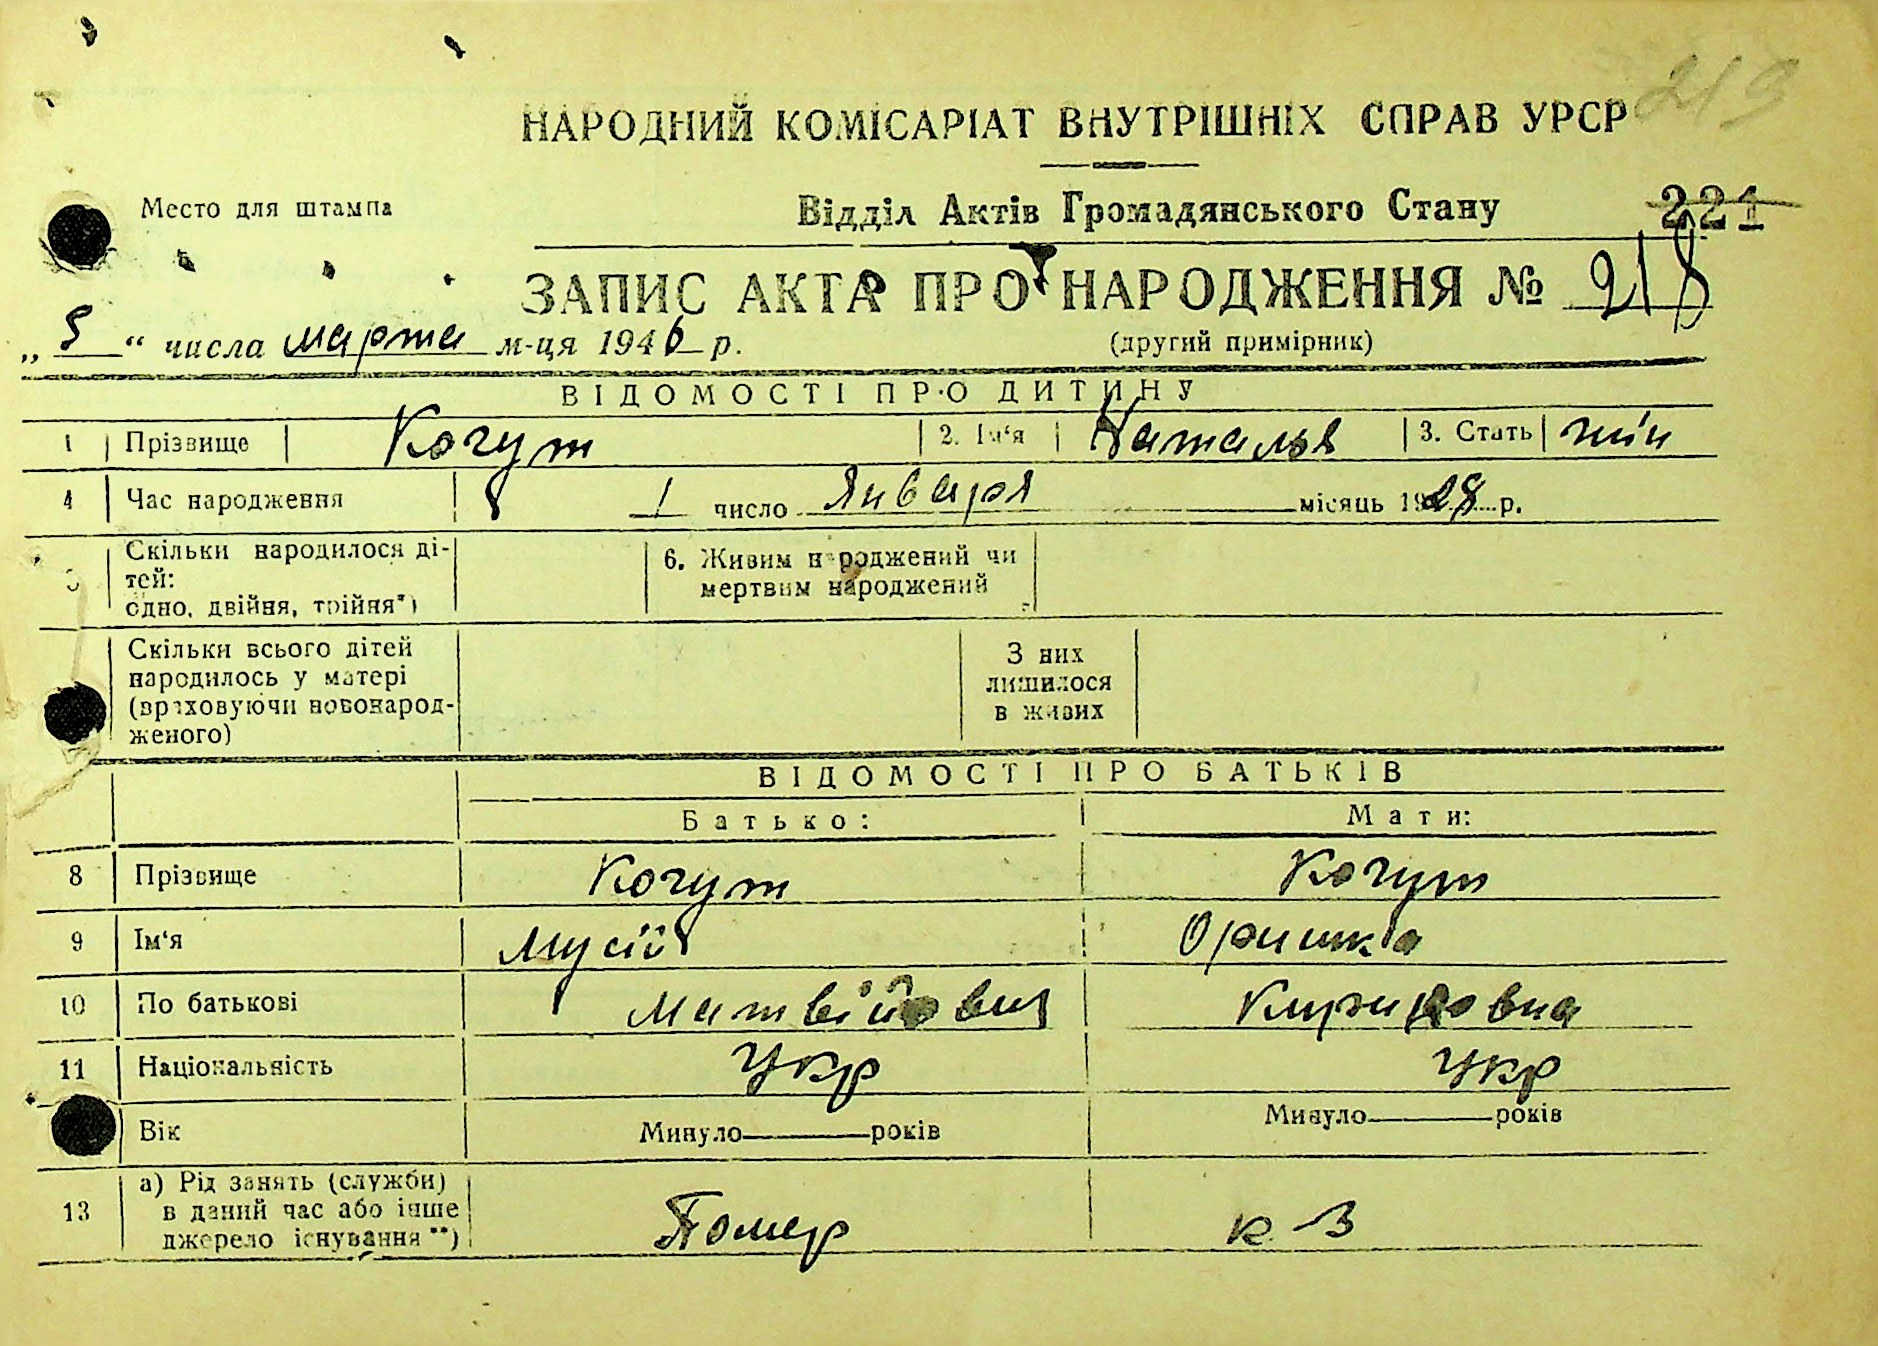 219
НАРОДНИЙ КОМІСАРІАТ ВНУТРІШНІХ СПРАВ УРСР
Место для штампа
Відділ Актів Громадянського Стану
221
ЗАПИС АКТА ПРО НАРОДЖЕННЯ № 218
„ 5 “ числа марта м-ця 1946 р.
(другий примірник)
ВІДОМОСТІ ПРО ДИТИНУ
1 Прізвище Когут 2. Ім‘я Наталья 3. Стать жін
4 Час народження 1 число Января місяць 1928 р.
5 Скільки народилося дітей: одно, двійня, трійня*) 6. Живим народжений чи мертвим народжений
Скільки всього дітей народилось у матері (враховуючи новонародженого) З них лишилося в живих
ВІДОМОСТІ ПРО БАТЬКІВ
Батько: Мати:
8 Прізвище Когут Когут
9 Ім‘я Мусій Оришка
10 По батькові Матвійович Кириловна
11 Національність Укр Укр
Вік Минуло років Минуло років
13 а) Рід занять (служби) в даний час або інше джерело існування **) Помер к з